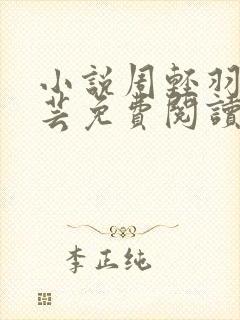 小說周輕羽
芸免費閱讀
李正纯